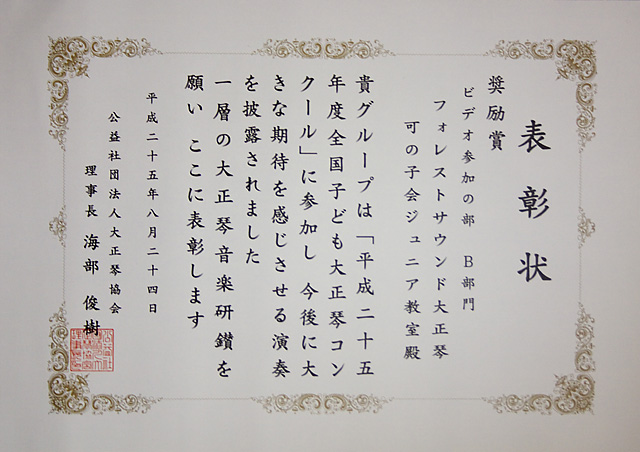 表彰状
奨励賞
ビデオ参加の部 B部門
フォレストサウンド大正琴
可の子会ジュニア教室殿
貴グループは「平成二十五
年度全国子ども大正琴コン
クール」に参加し 今後に大
きな期待を感じさせる演奏
を披露されました
一層の大正琴音楽研鑽を
願い ここに表彰します
平成二十五年八月二十四日
公益社団法人大正琴協会
理事長 海部 俊樹